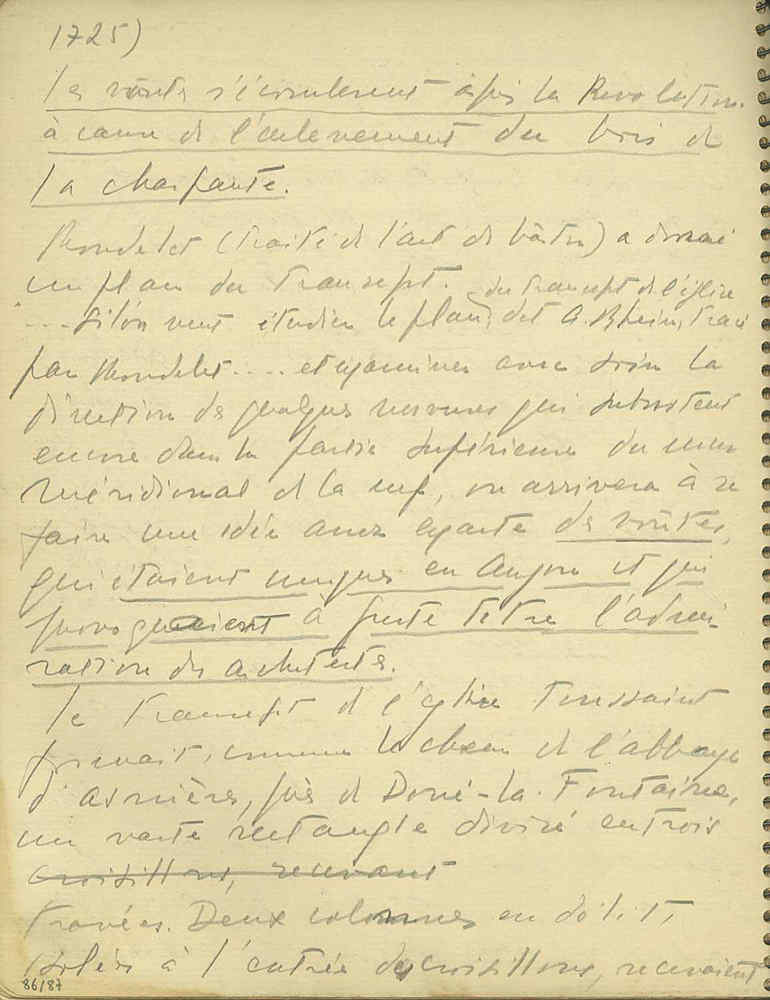 1725)
Les voûtes s'écroulèrent après la Révolution
à cause de l'enlèvement du bois de
la charpente.
Rondelet (Traité de l'art de bâtir) a donné
un plan du transept.
du transept de l'église
".... Si l'on veut étudier le plan, dit A. Rhein, tracé
par Rondelet .... et examiner avec soin la
direction de quelques nervures qui subsistent
encore dans la partie supérieure du mur
méridional de la nef, on arrivera à se
faire une idée assez exacte des voûtes,
qui étaient uniques en Anjou et qui
provoquaient à juste titre l'admi-
ration des architectes.
Le transept de l'église Toussaint
formait, comme le chœur de l'abbaye
d'Asnières, près de Doué-la-Fontaine,
un vaste rectangle divisé en trois
croisillons, recevant
travées. Deux colonnes en délit,
isolées à l'entrée des croisillons, recevaient
86/87